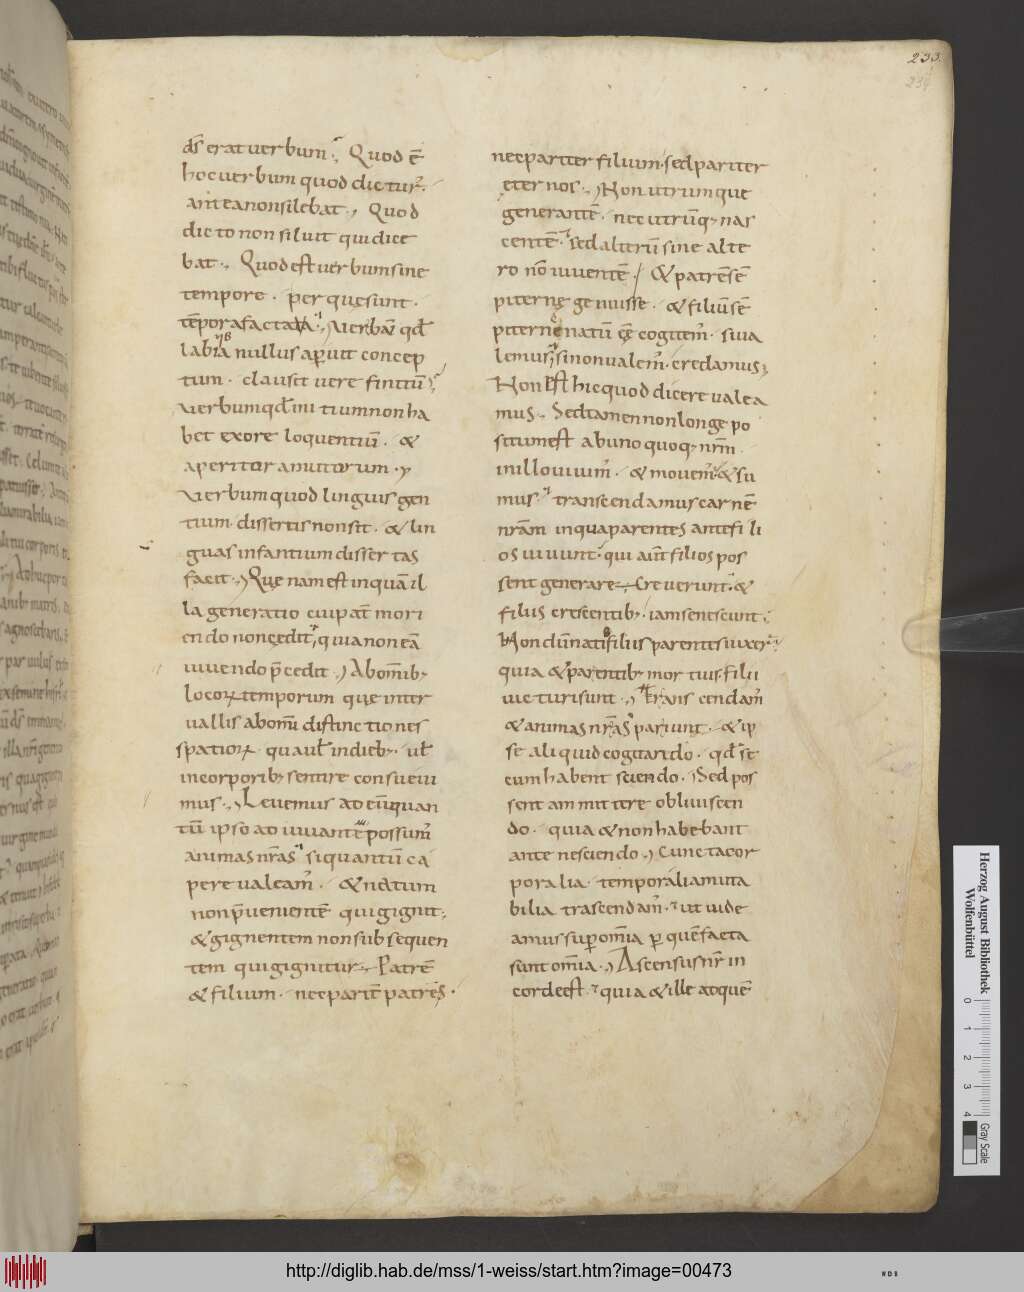 233
234
ds erat uerbum; Quod ē
hoc uerbum quod dictur;
antea non silebat; Quod
dicto non siluit qui dice
bat; Quod est uerbum sine
tempore. per quę sunt.
tēpora facta; Uerbū qd
labia nullus aperuit concep
tum. clausit uere finitū;
uerbum qd initium non ha
bet ex ore loquentiū. &
aperitor a mutorum.
uerbum quod linguis gen
tium dissertis non fit. & lin
guas infantium disser tas
facit; Quę nam est inquā il
la generatio cui pat mori
endo non cędit, quia non eā
uiuendo pcedit; Ab omib;
locorum temporum quę inter
uallis ab omi distinctiones
spatiorum. qua ul in dieb;. ul
in corporib; sentire consueui
mus; Leuemus ad eū quan
tū ipso adiuuante possum
animas nras si quantū ca
pere ualeam. & natum
non pueniente qui gignit;
& gignentem non subsequen
tem qui gignitur; Patrē
& filium. nec parit patres.
nec pariter filium. sed pariter
eternos; Non utrumque
generante. nec utrūq; nas
cente. sed alterū sine alte
ro nō uiuente / & patrē sē
piternę genuisse. & filiū sē
piterne natū eē cogitem. si ua
lemus; si non ualem. credamus;
Non est hic quod dicere ualea
mus; Sed tamen non longe po
situm est ab uno quoq; nrm.
in illo uiuim. & mouem. & su
mus. transcendamus carnē
nram in qua parentes ante fili
os uiuunt. qui aut filios pos
sent generare; Creuerunt. &
filiis crescentib;. iam senescunt;
Non dum natis filiis parentes uixer;
quia & parentib; mortuis. filii
uicturi sunt; Transcendam
& animas nras pariunt. & ip
se aliquid cogitando. qd se
cum habent sciendo. Sed pos
sent ammittere obliuiscen
do. quia & non habebant
ante nesciendo; Cuncta cor
poralia. temporalia muta
bilia trascendam. ut uide
amus sup omia p quē facta
sunt omia; Ascensus nr in
corde est. quia & ille ad quē
Herzog August Bibliothek
Wolfenbüttel
0 1 2 3 4
Gray Scale
http://diglib.hab.de/mss/1-weiss/start.htm?image=00473